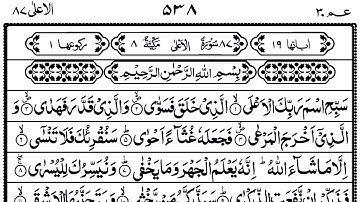 الاعلىٰ ٨٧ ٥٣٨ عـم ٣٠
اٰیاتها ١٩ ٨٧ سُوْرَةُ الْاَعْلٰى مَكِّيَّةٌ ٨ رکوعها ١
بِسْمِ اللّٰهِ الرَّحْمٰنِ الرَّحِيْمِ
سَبِّحِ اسْمَ رَبِّكَ الْاَعْلَى ۙ﴿١﴾ الَّذِيْ خَلَقَ فَسَوّٰى ۙ﴿٢﴾ وَالَّذِيْ قَدَّرَ فَهَدٰى ۙ﴿٣﴾ وَ
الَّذِيْٓ اَخْرَجَ الْمَرْعٰى ۙ﴿٤﴾ فَجَعَلَهٗ غُثَآءً اَحْوٰى ؕ﴿٥﴾ سَنُقْرِئُكَ فَلَا تَنْسٰٓى ۙ﴿٦﴾
اِلَّا مَا شَآءَ اللّٰهُ ؕ اِنَّهٗ يَعْلَمُ الْجَهْرَ وَمَا يَخْفٰى ؕ﴿٧﴾ وَنُيَسِّرُكَ لِلْيُسْرٰى ۚۖ﴿٨﴾
فَذَكِّرْ اِنْ نَّفَعَتِ الذِّكْرٰى ؕ﴿٩﴾ سَيَذَّكَّرُ مَنْ يَّخْشٰى ۙ﴿١٠﴾ وَيَتَجَنَّبُهَا الْاَشْقَى